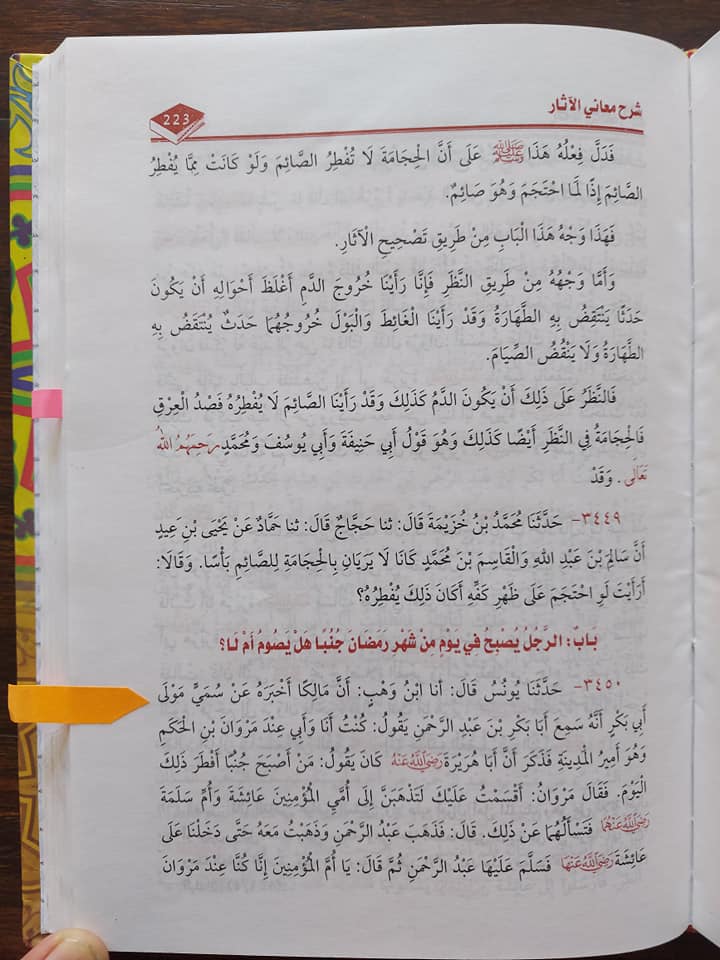 شرح معاني الآثار
223
فَدَلَّ فِعْلُهُ هَذَا ﷺ عَلَى أَنَّ الْحِجَامَةَ لَا تُفْطِرُ الصَّائِمَ وَلَوْ كَانَتْ مِمَّا يُفْطِرُ
الصَّائِمَ إِذًا لَمَا احْتَجَمَ وَهُوَ صَائِمٌ.
فَهَذَا وَجْهُ هَذَا الْبَابِ مِنْ طَرِيقِ تَصْحِيحِ الْآثَارِ.
وَأَمَّا وَجْهُهُ مِنْ طَرِيقِ النَّظَرِ فَإِنَّا رَأَيْنَا خُرُوجَ الدَّمِ أَغْلَظَ أَحْوَالِهِ أَنْ يَكُونَ
حَدَثًا يَنْتَقِضُ بِهِ الطَّهَارَةُ وَقَدْ رَأَيْنَا الْغَائِطَ وَالْبَوْلَ خُرُوجُهُمَا حَدَثٌ يُنْتَقَضُ بِهِ
الطَّهَارَةُ وَلَا يَنْقُضُ الصِّيَامَ.
فَالنَّظَرُ عَلَى ذَلِكَ أَنْ يَكُونَ الدَّمُ كَذَلِكَ وَقَدْ رَأَيْنَا الصَّائِمَ لَا يُفْطِرُهُ فَصْدُ الْعِرْقِ
فَالْحِجَامَةُ فِي النَّظَرِ أَيْضًا كَذَلِكَ وَهُوَ قَوْلُ أَبِي حَنِيفَةَ وَأَبِي يُوسُفَ وَمُحَمَّدٍ رَحِمَهُمُ اللهُ
تَعَالَى. وَقَدْ
٣٤٤٩- حَدَّثَنَا مُحَمَّدُ بْنُ خُزَيْمَةَ قَالَ: ثنا حَجَّاجٌ قَالَ: ثنا حَمَّادٌ عَنْ يَحْيَى بْنِ عَبِيدٍ
أَنَّ سَالِمَ بْنَ عَبْدِ اللهِ وَالْقَاسِمَ بْنَ مُحَمَّدٍ كَانَا لَا يَرَيَانِ بِالْحِجَامَةِ لِلصَّائِمِ بَأْسًا. وَقَالَا:
أَرَأَيْتَ لَوِ احْتَجَمَ عَلَى ظَهْرِ كَفِّهِ أَكَانَ ذَلِكَ يُفْطِرُهُ؟
بَابٌ: الرَّجُلُ يُصْبِحُ فِي يَوْمٍ مِنْ شَهْرِ رَمَضَانَ جُنُبًا هَلْ يَصُومُ أَمْ لَا؟
٣٤٥٠- حَدَّثَنَا يُونُسُ قَالَ: أنا ابْنُ وَهْبٍ: أَنَّ مَالِكًا أَخْبَرَهُ عَنْ سُمَيٍّ مَوْلَى
أَبِي بَكْرٍ أَنَّهُ سَمِعَ أَبَا بَكْرِ بْنَ عَبْدِ الرَّحْمَنِ يَقُولُ: كُنْتُ أَنَا وَأَبِي عِنْدَ مَرْوَانَ بْنِ الْحَكَمِ
وَهُوَ أَمِيرُ الْمَدِينَةِ فَذَكَرَ أَنَّ أَبَا هُرَيْرَةَ رَضِيَ اللهُ عَنْهُ كَانَ يَقُولُ: مَنْ أَصْبَحَ جُنُبًا أَفْطَرَ ذَلِكَ
الْيَوْمَ. فَقَالَ مَرْوَانُ: أَقْسَمْتُ عَلَيْكَ لَتَذْهَبَنَّ إِلَى أُمَّيِ الْمُؤْمِنِينَ عَائِشَةَ وَأُمِّ سَلَمَةَ
رَضِيَ اللهُ عَنْهُمَا فَتَسْأَلُهُمَا عَنْ ذَلِكَ. قَالَ: فَذَهَبَ عَبْدُ الرَّحْمَنِ وَذَهَبْتُ مَعَهُ حَتَّى دَخَلْنَا عَلَى
عَائِشَةَ رَضِيَ اللهُ عَنْهَا فَسَلَّمَ عَلَيْهَا عَبْدُ الرَّحْمَنِ ثُمَّ قَالَ: يَا أُمَّ الْمُؤْمِنِينَ إِنَّا كُنَّا عِنْدَ مَرْوَانَ